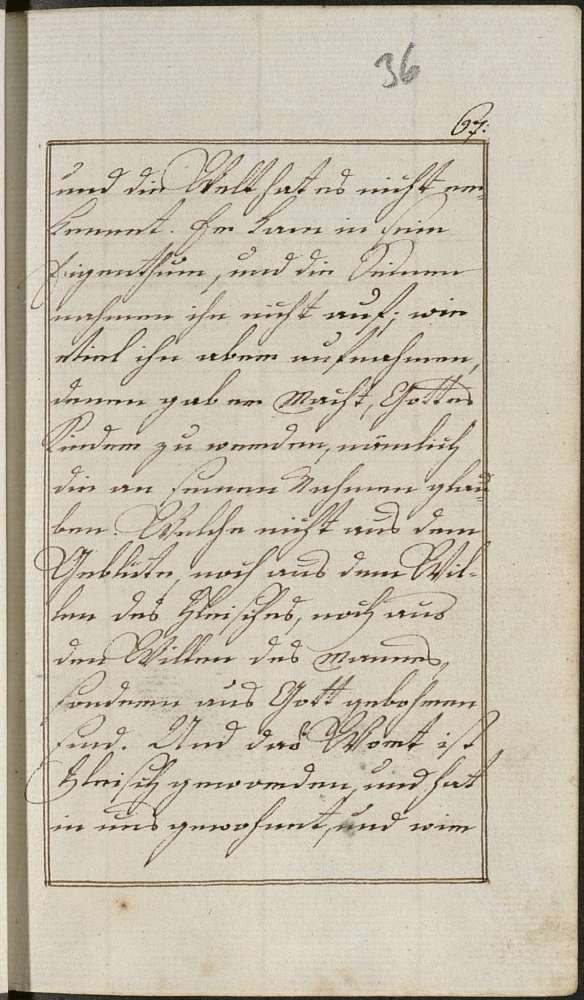 36
67.
und die Welt hat es nicht er-
kennet. Er kam in sein
Eigenthum, und die Seinen
nahmen ihn nicht auf; wie
viel ihn aber aufnahmen,
denen gab er Macht, Gottes
Kinder zu werden, nämlich
die an seinen Nahmen glau-
ben. Welche nicht aus dem
Geblüte, noch aus dem Wil-
len des Fleisches, noch aus
den Willen des Mannes,
sondern aus Gott gebohren
sind. Und das Wort ist
Fleisch geworden, und hat
in uns gewohnet, und wir